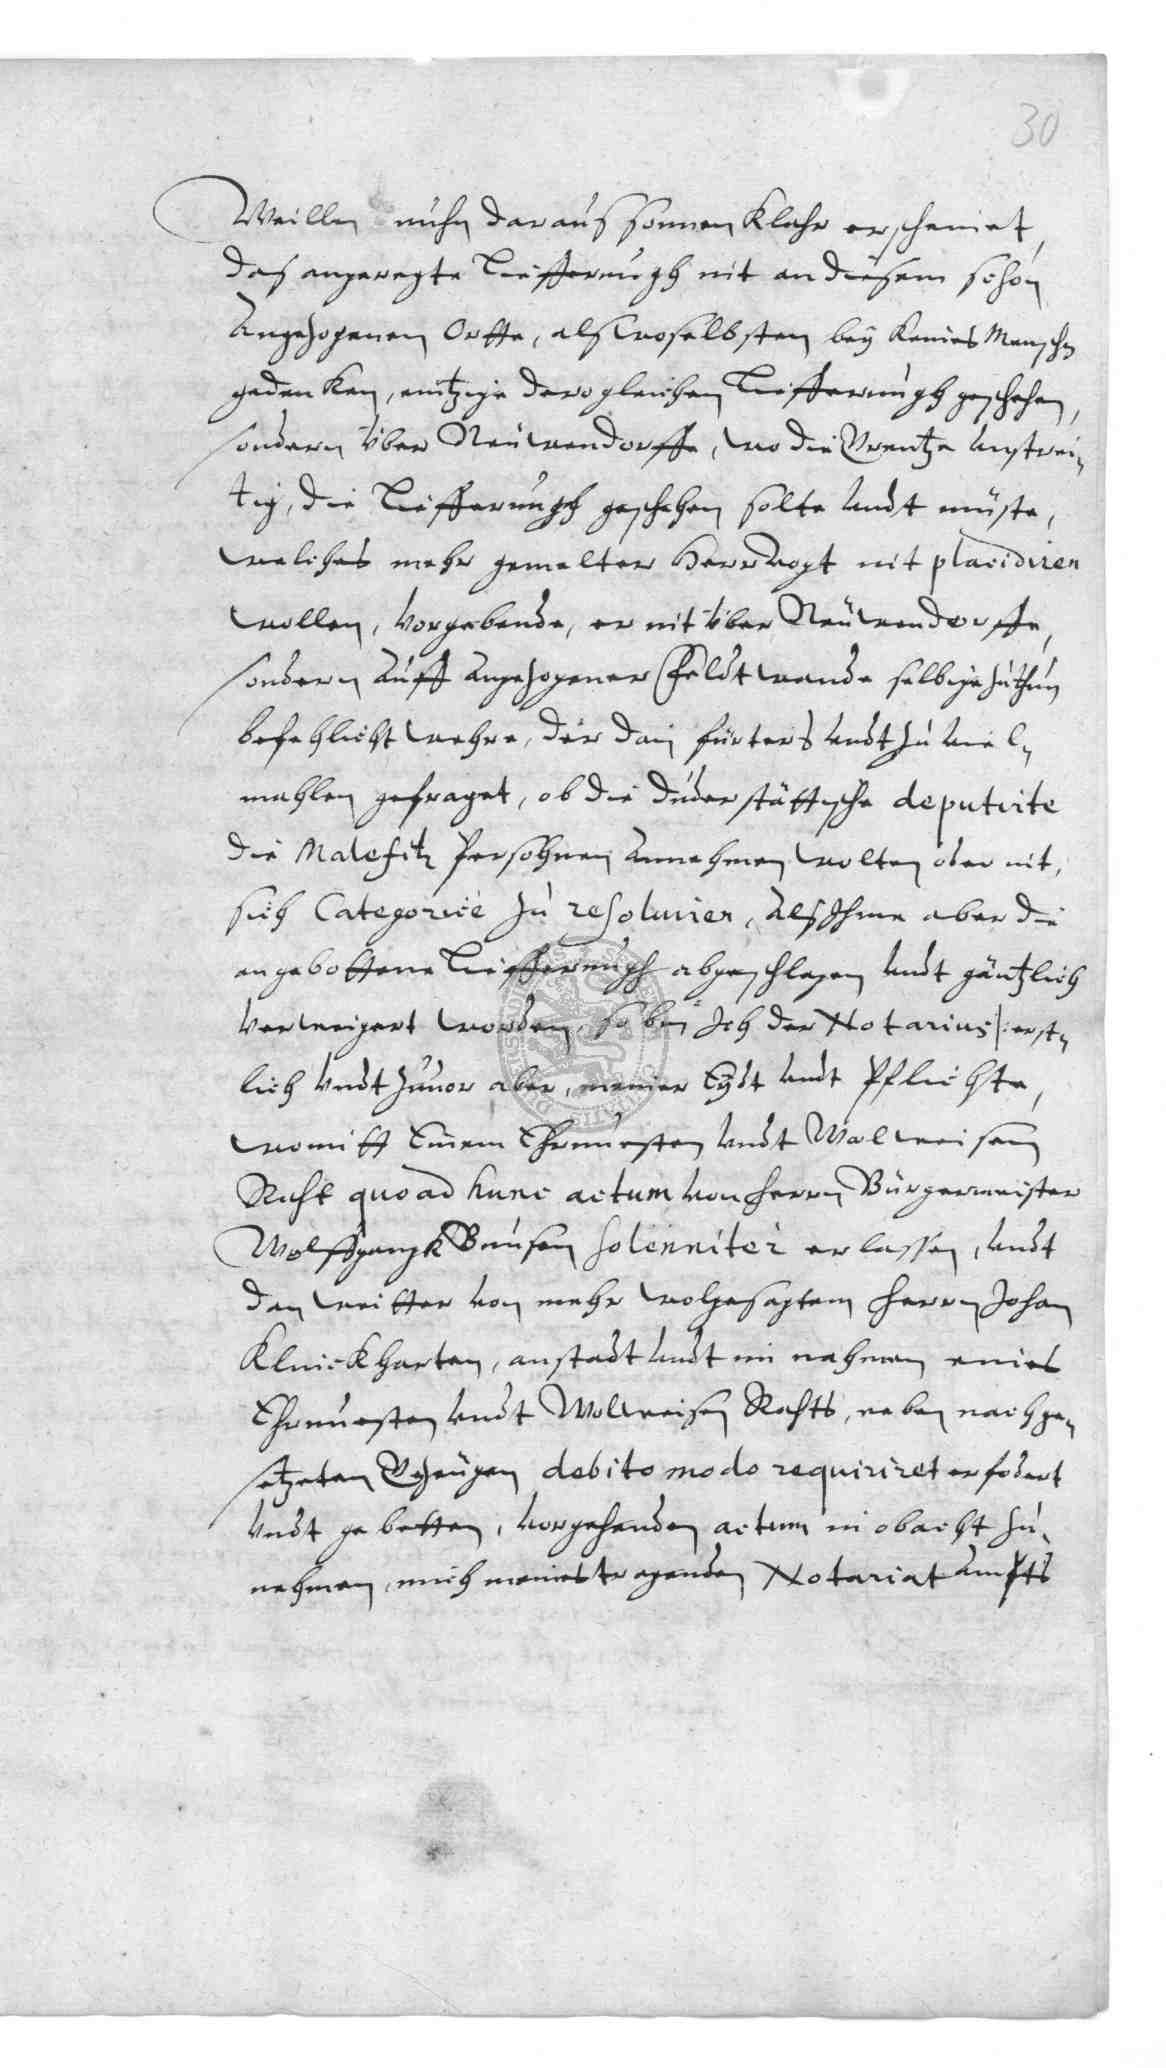 30
Weillen nuhn daraus sonnen Klahr erscheinet,
das angeregte Liefferungh nit an diesem schon
Angezogenen Ortte, als woselbsten bey Keines Menschen
gedenken, eintzige derogleichen Liefferungh geschehen,
sondern über Neuwendorffe, wo die Grentze unstrei„
tig, die Liefferungh geschehen solte undt müste,
welches mehr gemelter Herr Vogt nit placidiren
wollen, vorgebende, er nit über Neuwendorffe,
sondern Auff Angezogener Feldt wende selbige zuthun
befehlicht wehre, der dan fürters undt zu viel„
mahlen gefraget, ob die Duderstättische deputirte
die Malefitz Persohnen Annehmen wolten oder nit,
sich Categoricè zu resoluiren, Als Ihme aber die
angebottene Liefferungh abgeschlagen undt gäntzlich
verweigert worden, so bin Ich der Notarius |: erst„
lich undt zuuor aber, meiner Eydt undt Pflichte,
womitt Einem Ehrnuesten undt Wolweisen
Raht quoad hunc actum von Herrn Bürgermeister
Wolffgangk Bunsen solenniter erlassen, undt
dan weitter von mehr wolgesagtem Herrn Johan
Klinckharten, anstadt undt im nahmen eines
Ehrnuesten undt Wolweisen Rahts, neben nachge„
setzeten Gezeugen debito modo requiriret erfodert
undt gebetten, vorgehenden actum in obacht zu„
nehmen, mich meines tragenden Notariat Ambts